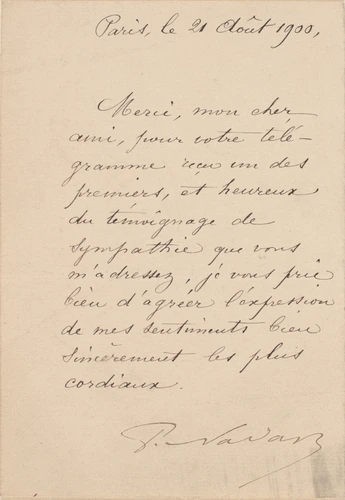 Paris, le 21 Août 1900,
Merci, mon cher
ami, pour votre télé-
gramme reçu un des
premiers, et heureux
du témoignage de
sympathie que vous
m'adressez, je vous prie
bien d'agréer l'expession
de mes sentiments bien
sincèrement les plus
cordiaux.
P. Nadar